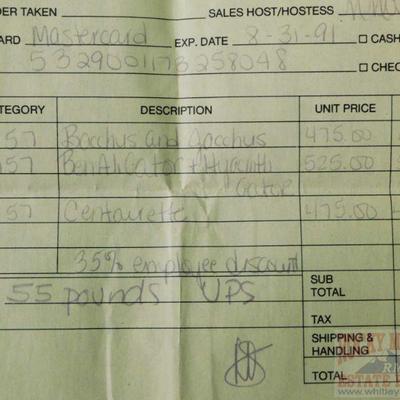 DER TAKEN SALES HOST/HOSTESS
ARD Mastercard EXP. DATE 8-31-91 ☐ CASH
5329001173258048 ☐ CHEC
ATEGORY DESCRIPTION UNIT PRICE
57 Bacchus and Jocchus 475.00
57 Ben Ali Gator + Hyacinth 525.00
Gator
57 Centaurette 475.00
35% employee discount
55 pounds UPS
SUB
TOTAL
TAX
SHIPPING &
HANDLING
TOTAL
ESTATE
www.whitley